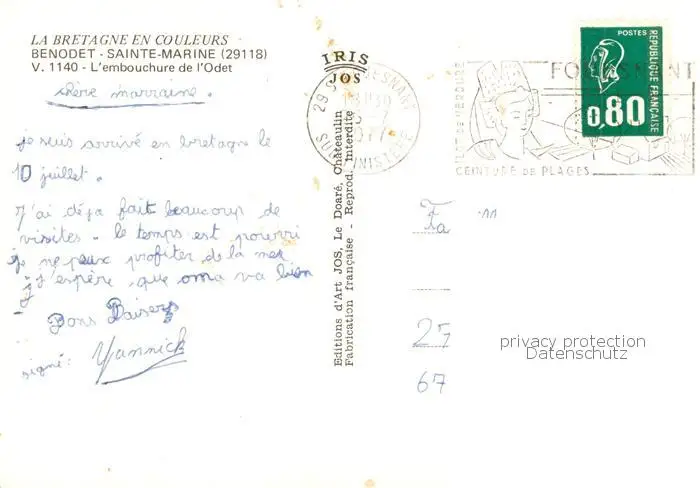 LA BRETAGNE EN COULEURS
BENODET - SAINTE-MARINE (29118)
V. 1140 - L'embouchure de l'Odet
chère marraine.
je suis arrivé en bretagne le
10 juillet.
J'ai déja fait beaucoup de
visites. le temps est pourri
je ne peux profiter de la mer
j'espère que oma va bien
Bons Baisers
signé: Yannick
IRIS
JOS
Editions d'Art JOS, Le Doaré, Châteaulin
Fabrication française - Reprod. interdite
29
SUD FINISTERE
CEINTURE DE PLAGES
POSTES
REPUBLIQUE FRANÇAISE
0,80
Fa
27
67
privacy protection
Datenschutz